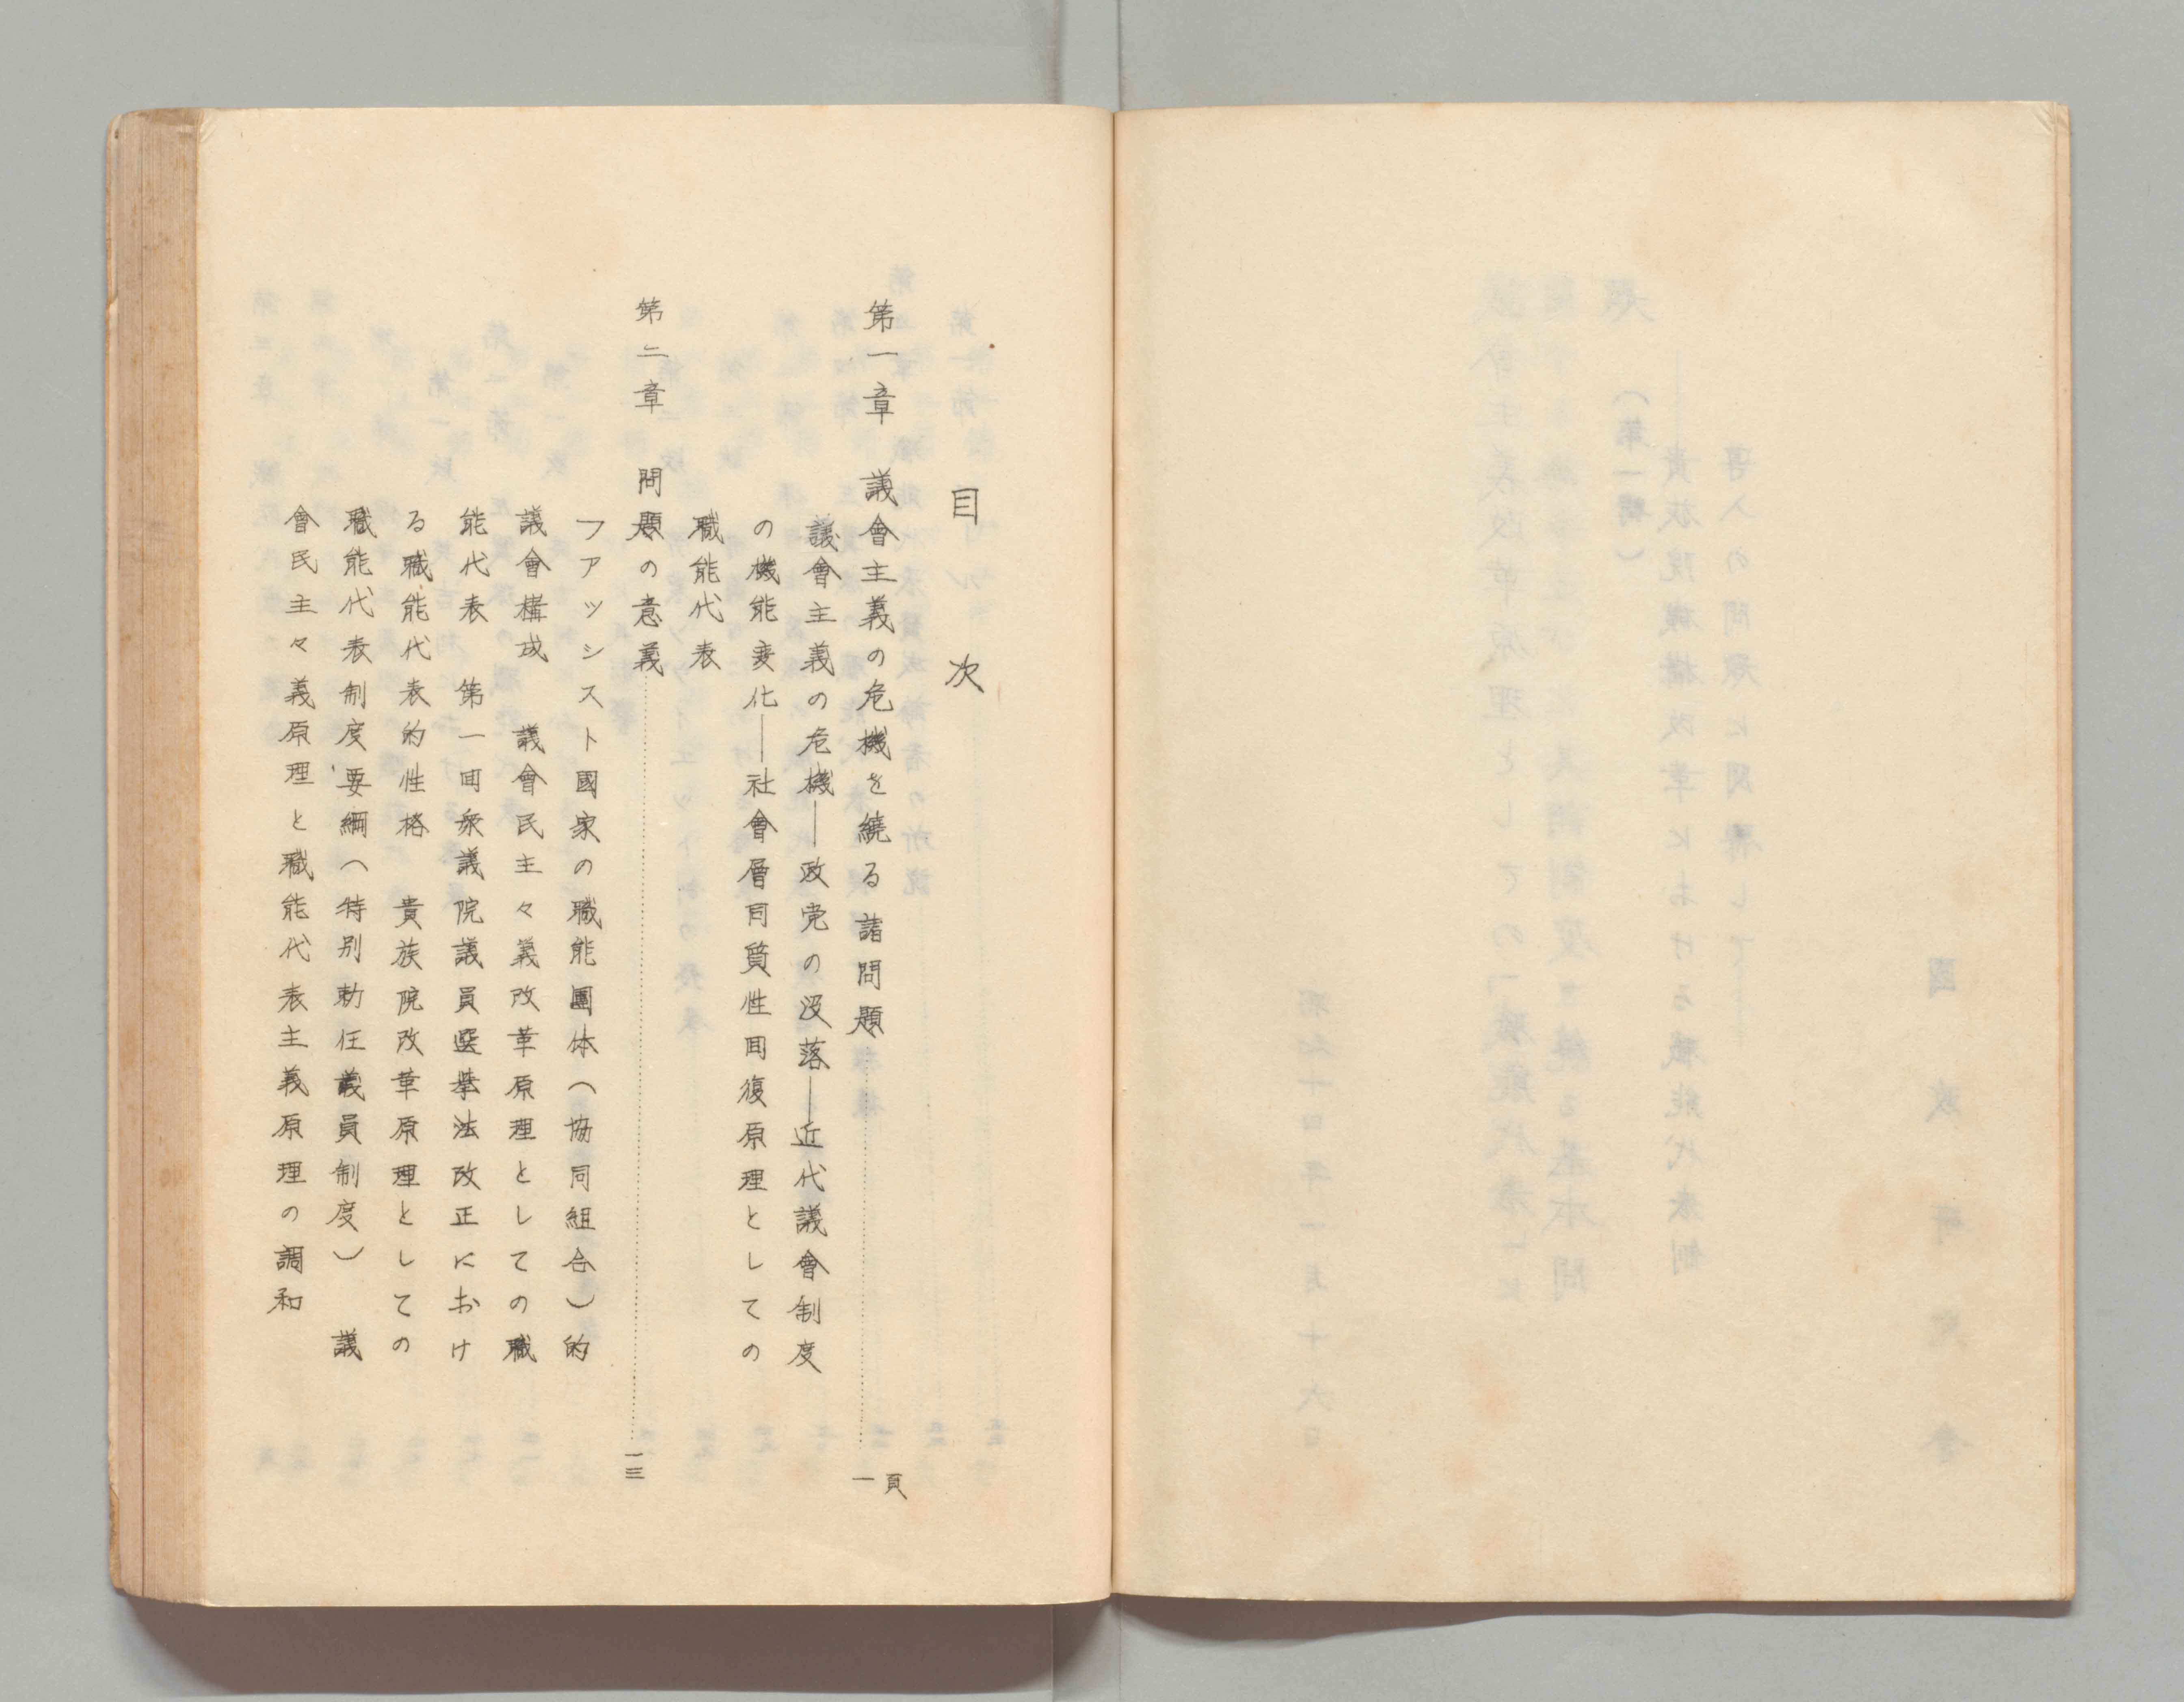 目次
第一章　議會主義の危機を繞る諸問題……………一頁
議會主義の危機―政党の没落―近代議會制度
の機能変化―社會層同質性回復原理としての
職能代表
第二章　問題の意義……………一三
フアッシスト國家の職能團体（協同組合）的
議會構成　議會民主々義改革原理としての職
能代表　第一回衆議院議員選挙法改正におけ
る職能代表的性格　貴族院改革原理としての
職能代表制度要綱（特別勅任議員制度）　議
會民主々義原理と職能代表主義原理の調和